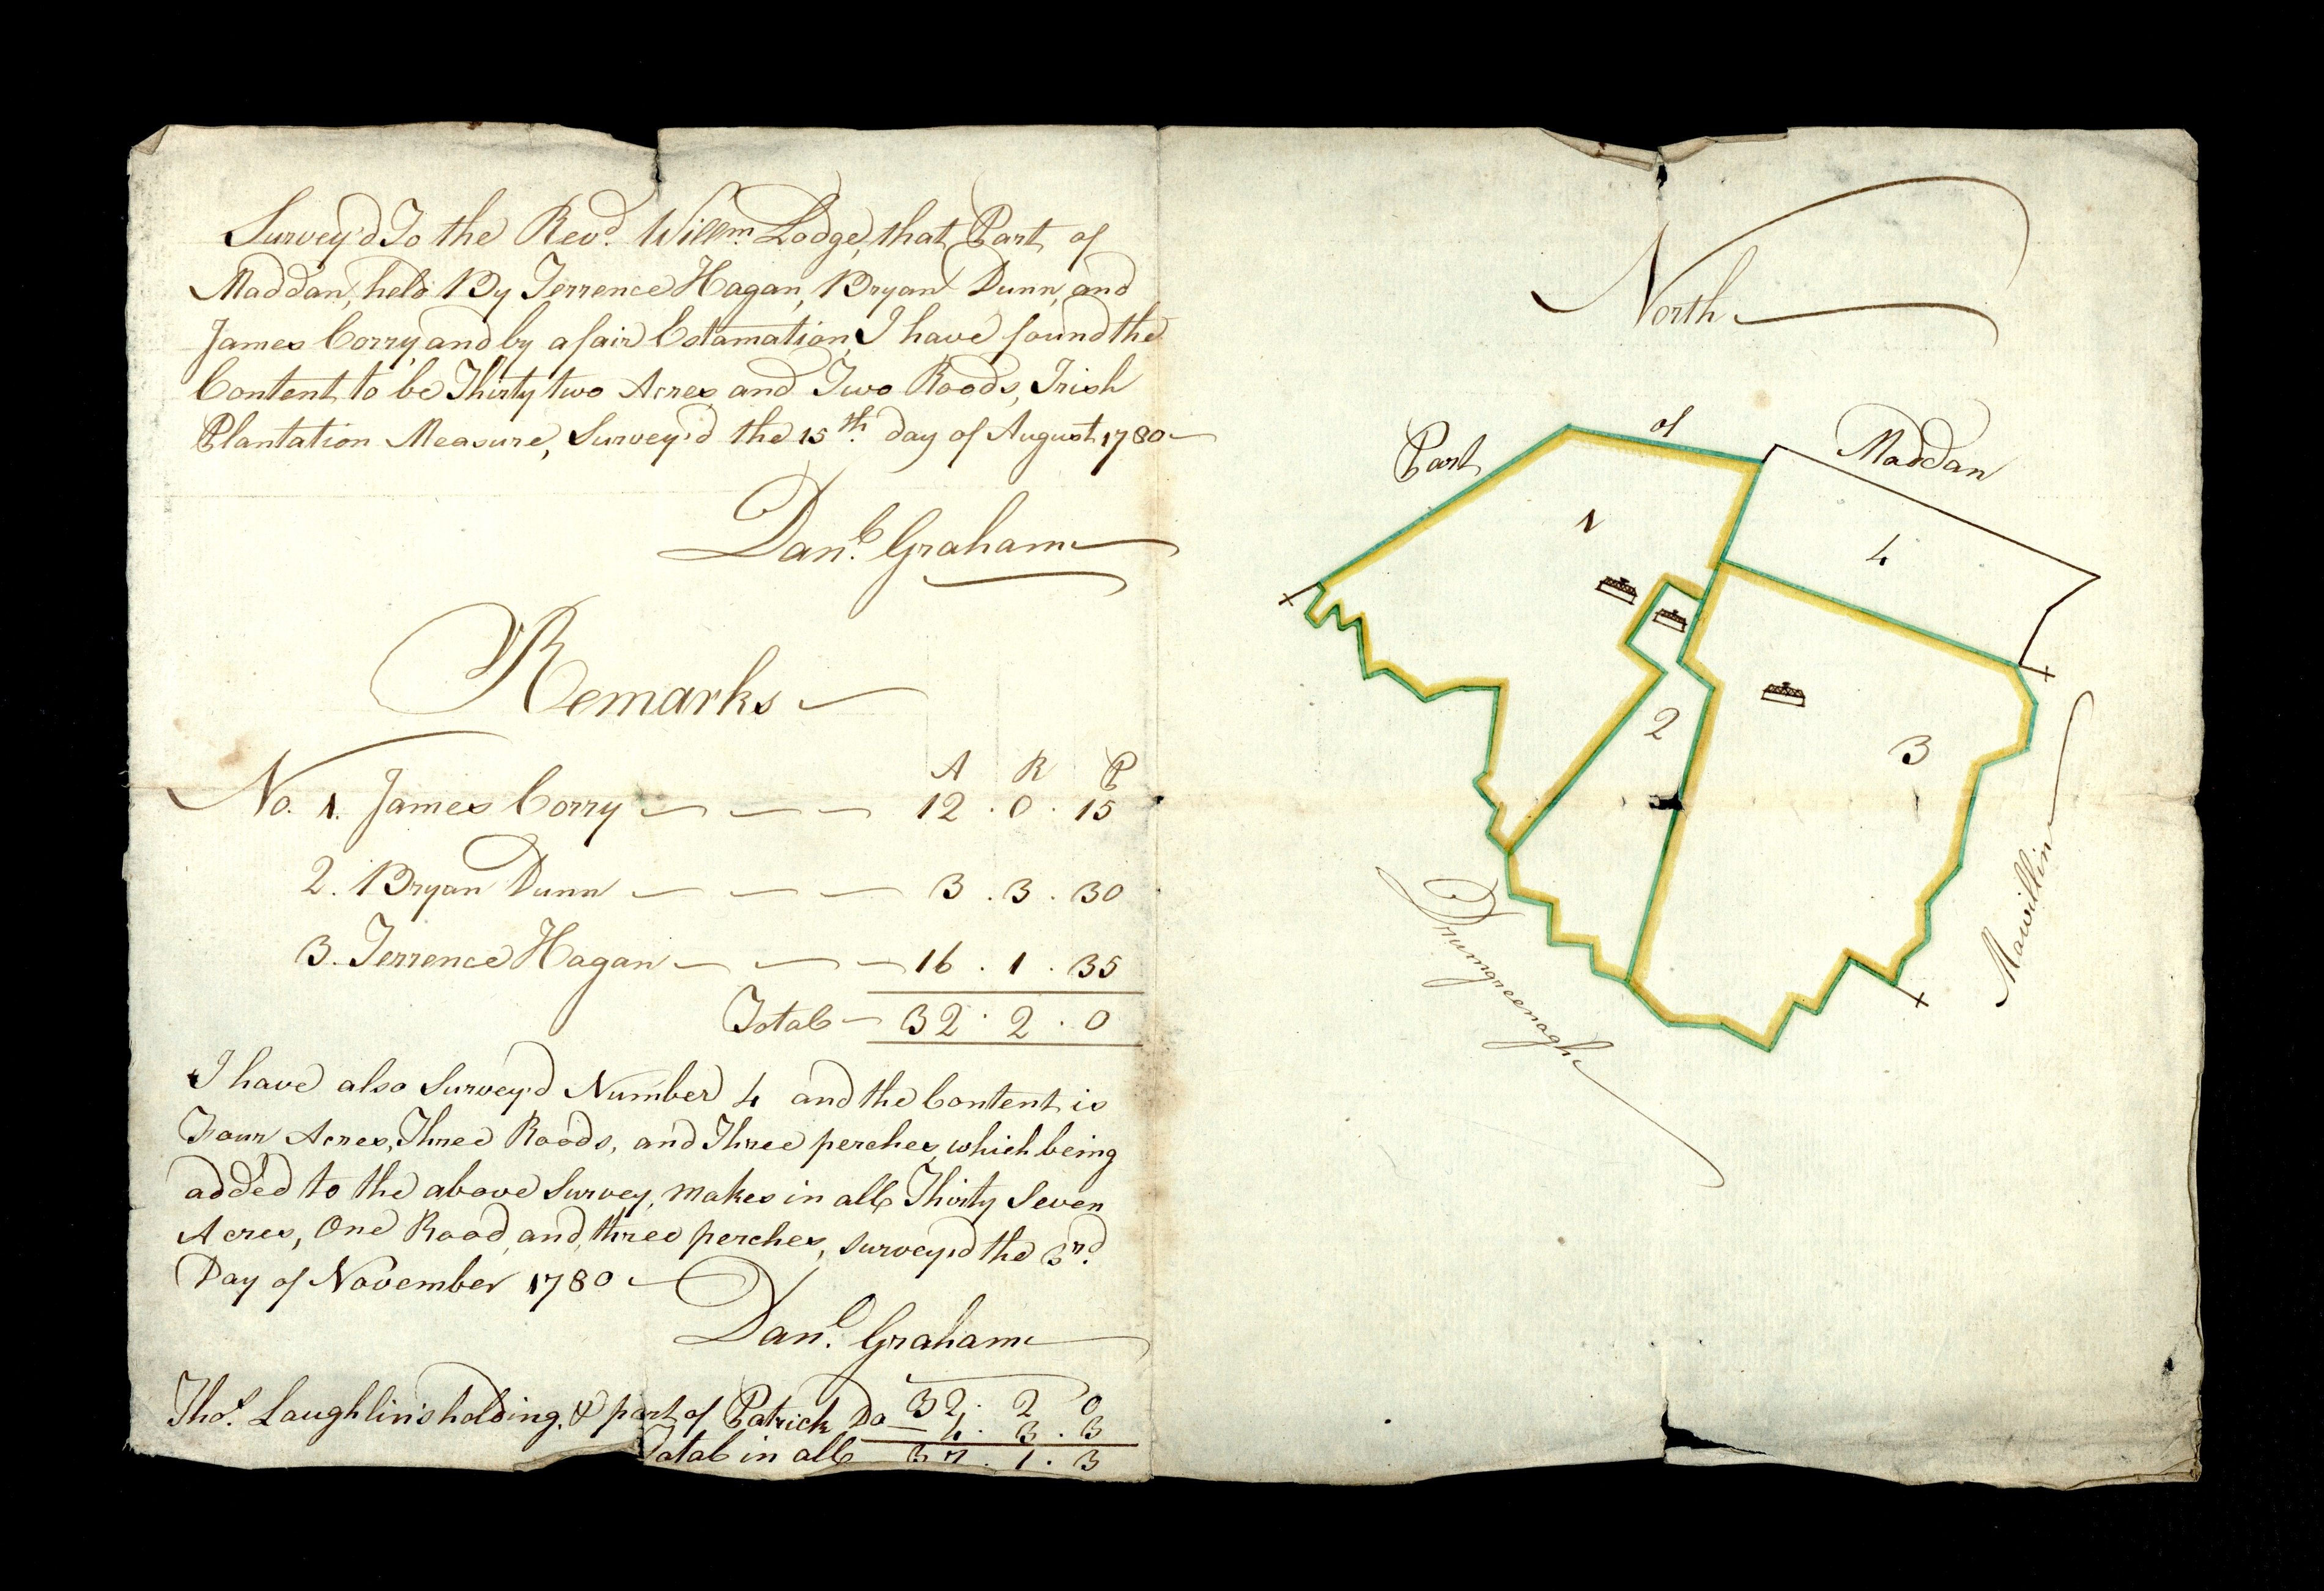 Survey'd To the Revd. Willm. Lodge, that Part of
Maddan, held By Terrence Hagan, Bryan Dunn, and
James Corry, and by a fair Estamation, I have found the
Content to be Thirty two Acres and Two Roods, Irish
Plantation Measure, Survey'd the 15th. day of August 1780
Danl. Graham
Remarks
A R P
No. 1. James Corry 12 . 0 . 15
2. Bryan Dunn 3 . 3 . 30
3. Terrence Hagan 16 . 1 . 35
Total 32 . 2 . 0
I have also Survey'd Number 4 and the Content is
Four Acres, Three Roods, and Three perches, which being
added to the above Survey, makes in all Thirty Seven
Acres, One Rood, and three perches, survey'd the 3rd.
Day of November 1780
Danl. Graham
Thos. Laughlin's holding, & part of Patrick Do 32 . 2 0
4 . 3 . 3
Total in all 37 . 1 . 3
North
Part of Maddan
1
4
2
3
Drumgreenagh
Mawillin